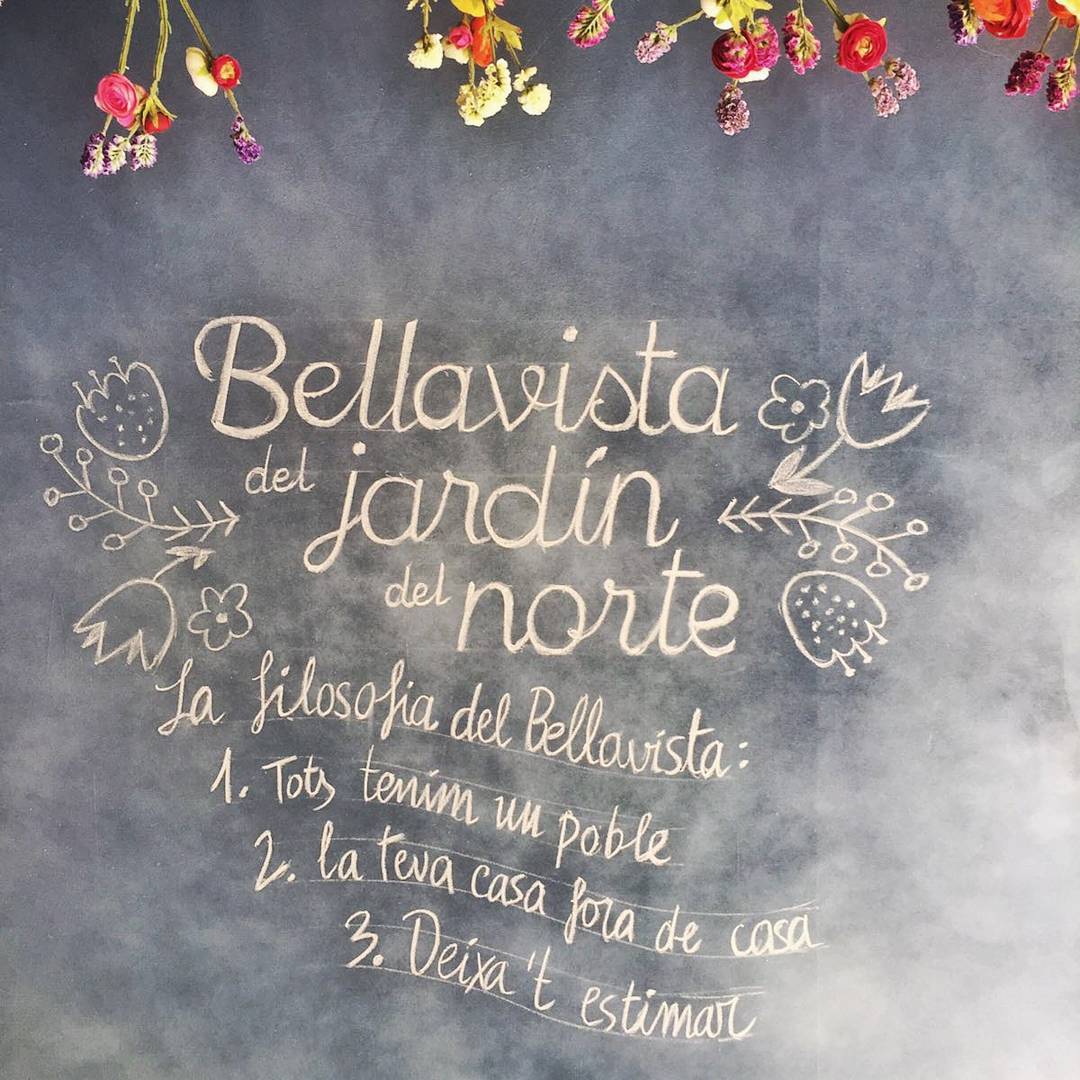 Bellavista
del jardín
del norte
La filosofia del Bellavista:
1. Tots tenim un poble
2. la teva casa fora de casa
3. Deixa't estimar